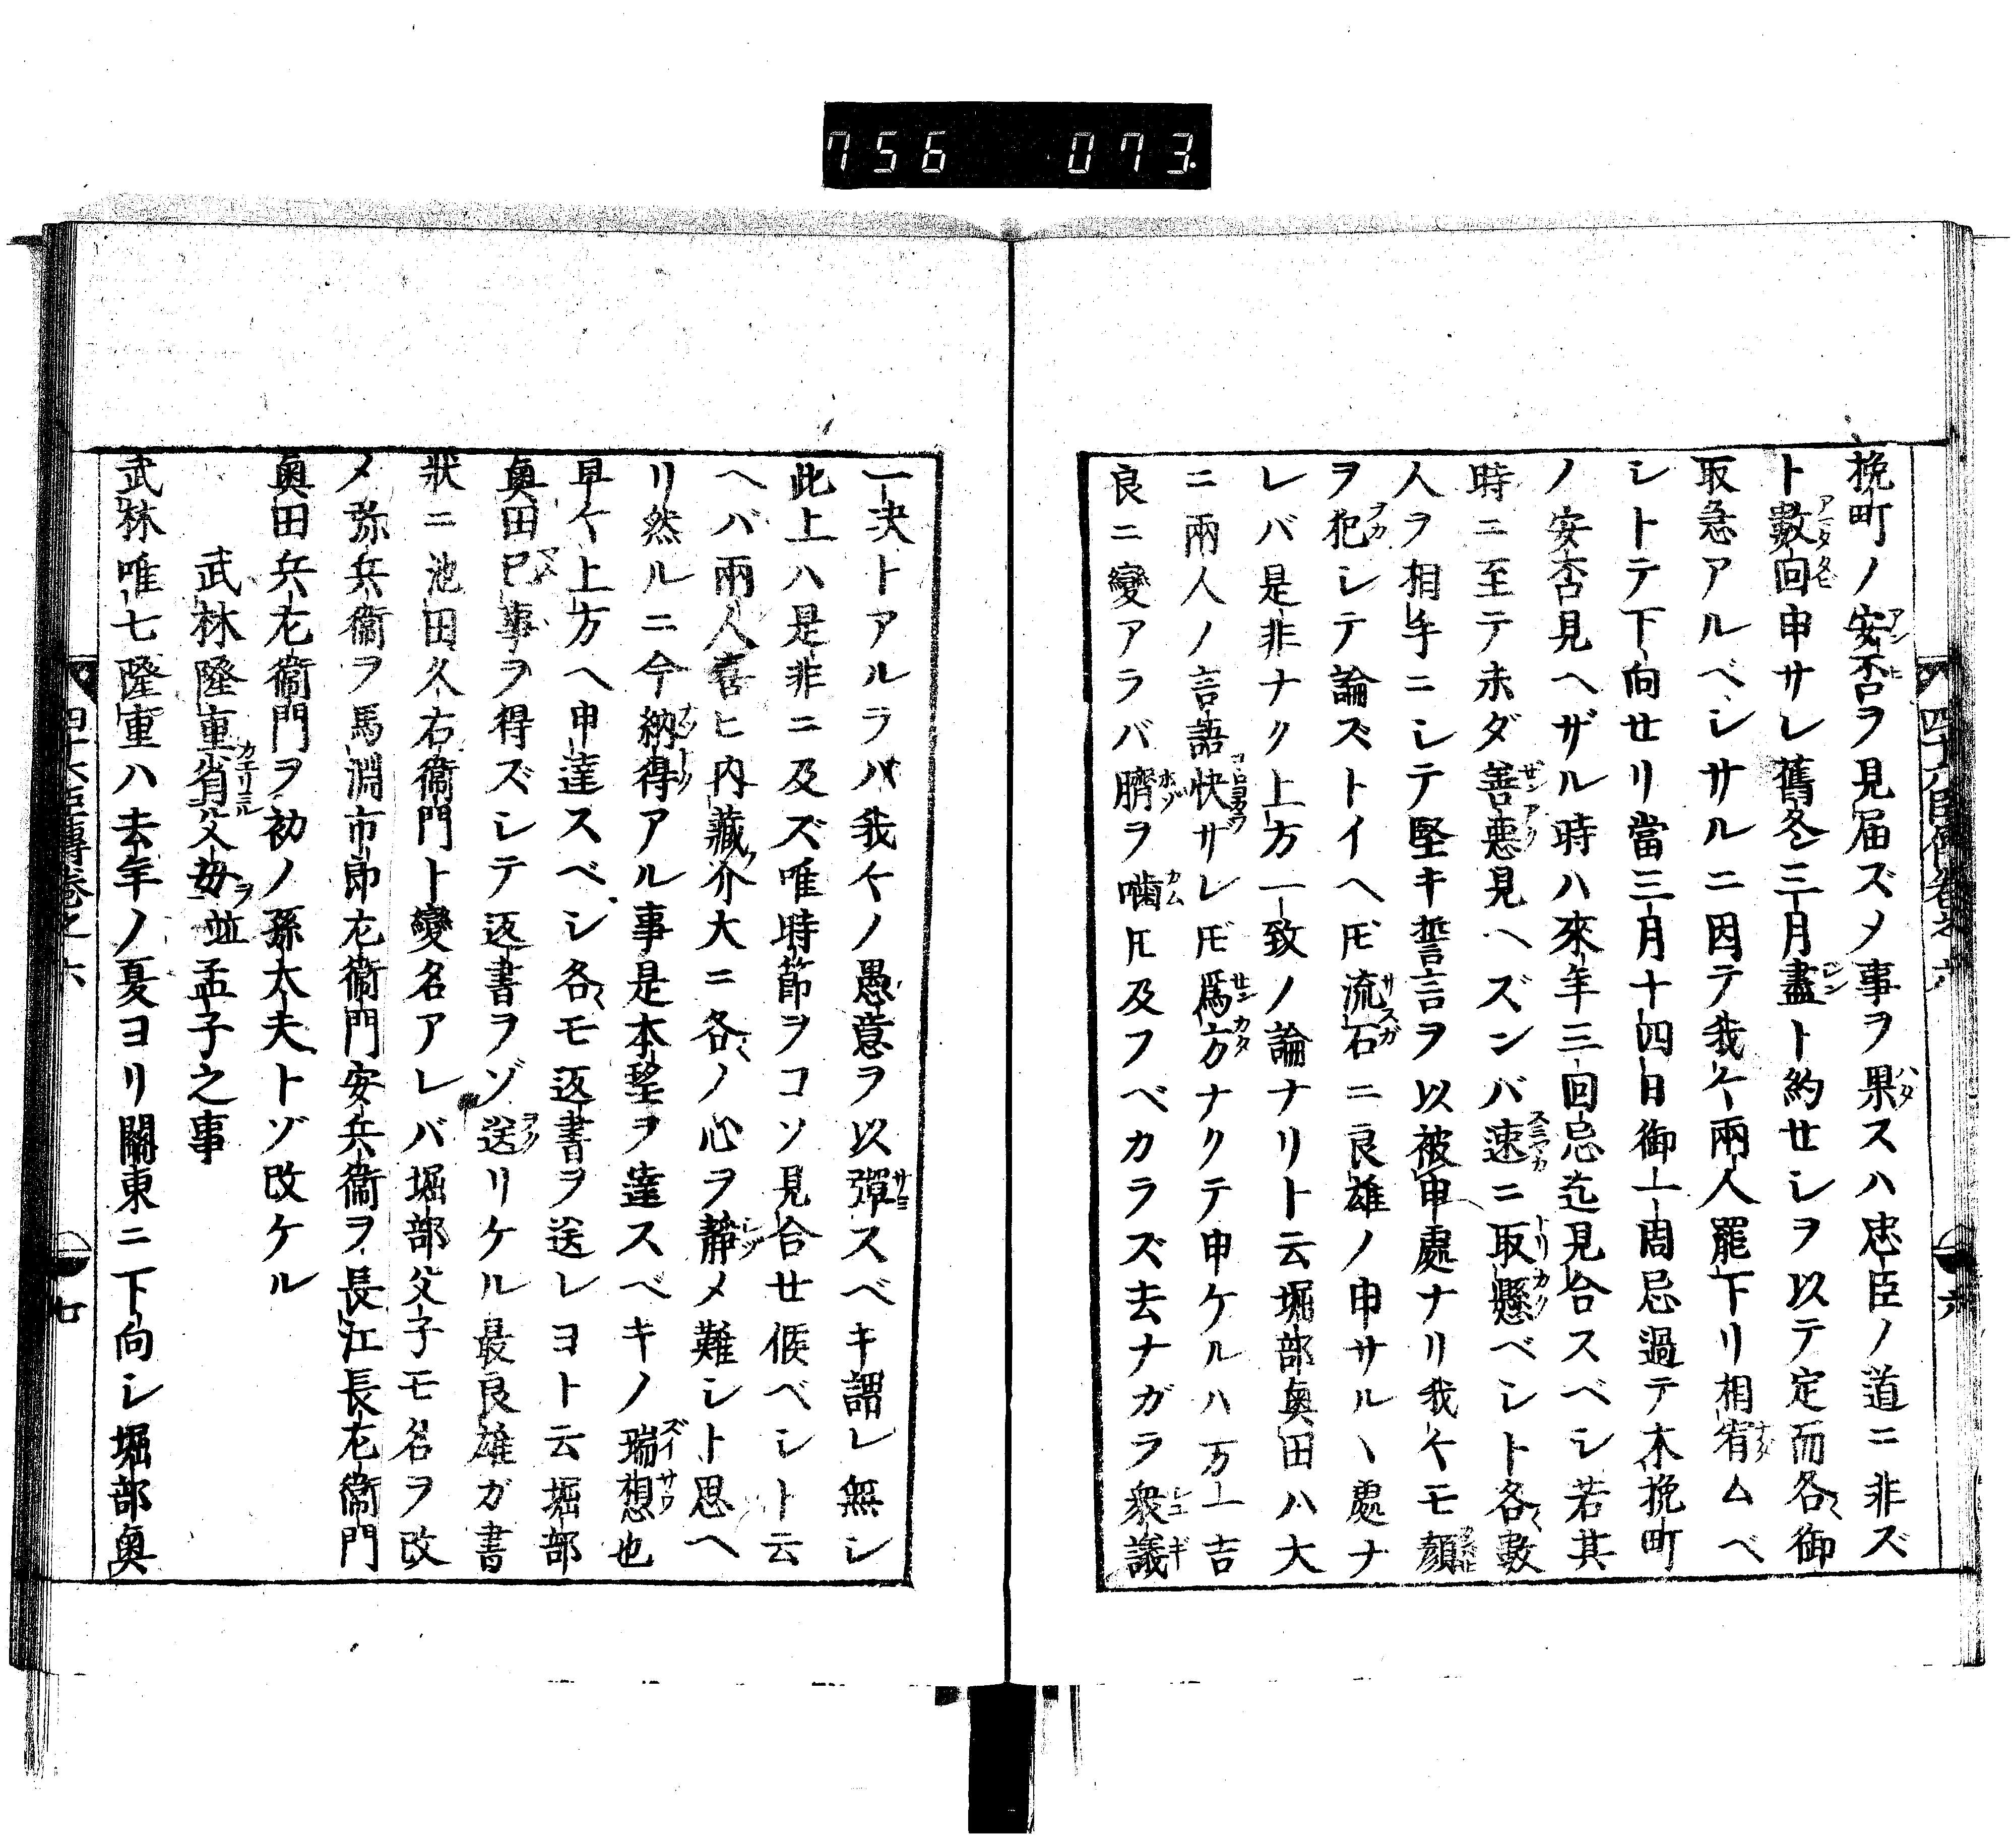 756 073
挽町ノ安否ヲ見届ズメ事ヲ果スハ忠臣ノ道ニ非ズ
ト數回申サレ舊冬三月盡ト約せシヲ以テ定而各〻御
取急アルベシサルニ因テ我々兩人罷下リ相宥ムベ
シトテ下向せリ當三月十四日御一周忌過テ木挽町
ノ安否見ヘザル時ハ來年三回忌迄見合スベシ若其
時ニ至テ未ダ善悪見ヘズンバ速ニ取懸ベシト各〻數
人ヲ相手ニシテ堅キ誓言ヲ以被申處ナリ我々モ顔
ヲ犯シテ論ズトイヘ𪜈流石ニ良雄ノ申サルヽ處ナ
レバ是非ナク上方一致ノ論ナリト云堀部奥田ハ大
ニ兩人ノ言語快サレ𪜈爲方ナクテ申ケルハ万一吉
良ニ變アラバ臍ヲ噛𪜈及フベカラズ去ナガラ衆議
一決トアルラハ我々ノ愚意ヲ以彈スベキ謂レ無シ
此上ハ是非ニ及ズ唯時節ヲコソ見合せ候ベシト云
ヘバ兩人喜ヒ内藏介大ニ各〻ノ心ヲ靜メ難シト思ヘ
リ然ルニ今納得アル事是本望ヲ達スベキノ瑞想也
早々上方ヘ申達スベシ各〻モ返書ヲ送レヨト云堀部
奥田已事ヲ得ズシテ返書ヲゾ送リケル最良雄ガ書
狀ニ池田久右衞門ト變名アレバ堀部父子モ名ヲ改
メ弥兵衞ヲ馬淵市郎左衞門安兵衞ヲ長江長左衞門
奥田兵左衞門ヲ初ノ孫太夫トゾ改ケル
武林隆重省父母並孟子之事
武林唯七隆重ハ去年ノ夏ヨリ關東ニ下向シ堀部奥